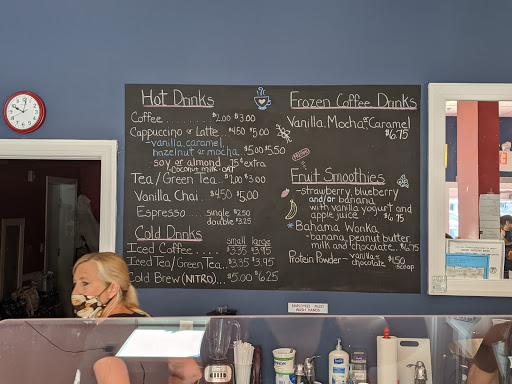 Hot Drinks
Coffee.... $2.00 $3.00
Cappuccino or Latte.. $4.50 $5.00
-vanilla, caramel,
hazelnut or mocha. $5.00 $5.50
soy or almond .75¢ extra
Coconut milk - OAT
Tea/Green Tea.. $1.00 $3.00
Vanilla Chai. $4.50 $5.00
Espresso.... single $2.50
double $3.25
Cold Drinks
small large
Iced Coffee.... $3.35 $3.95
Iced Tea/Green Tea.. $3.35 $3.95
Cold Brew (NITRO)... $5.00 $6.25
Frozen Coffee Drinks
Vanilla, Mocha, or Caramel
$6.75
Fruit Smoothies
-strawberry, blueberry
and/or banana
with vanilla yogurt and
apple juice $6.75
Bahama Wonka
-banana, peanut butter,
milk and chocolate.. $6.75
Protein Powder - vanilla or
chocolate $1.50
scoop
EMPLOYEES MUST
WASH HANDS